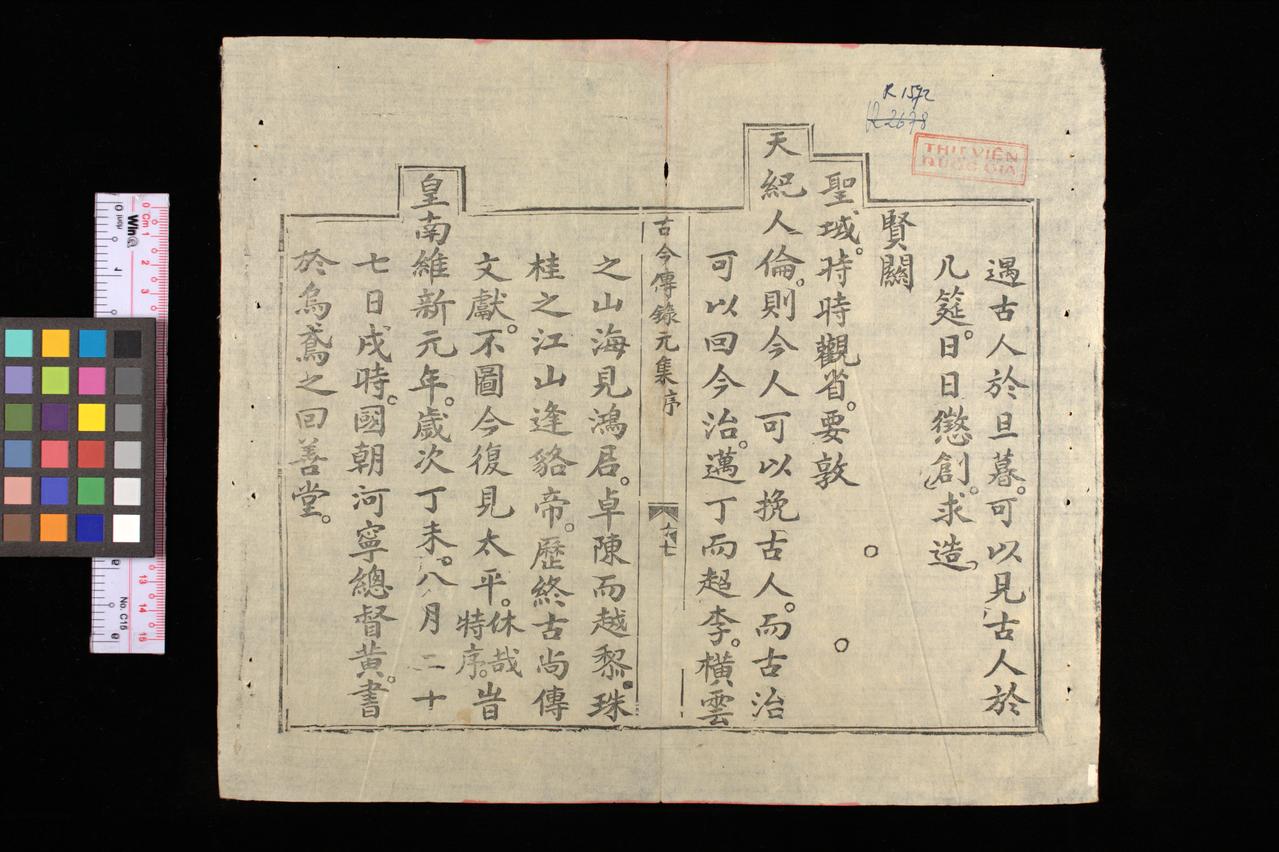 R 1572
R 2678
THƯ VIỆN
QUỐC GIA
遇古人於旦暮。可以見古人於
几筵。日日懲創。求造。
賢關
聖域。時時觀省。要敦
天紀人倫。則今人可以挽古人。而古治
可以回今治。邁丁而超李。橫雲
古今傳錄元集序
六七
之山海見鴻厖。卓陳而越黎。珠
桂之江山逢貉帝。歷終古尚傳
文獻。不圖今復見太平。休哉特序。旹
皇南維新元年。歲次丁未。八月二十
七日戌時。國朝河寧總督黃。書
於烏鳶之回善堂。